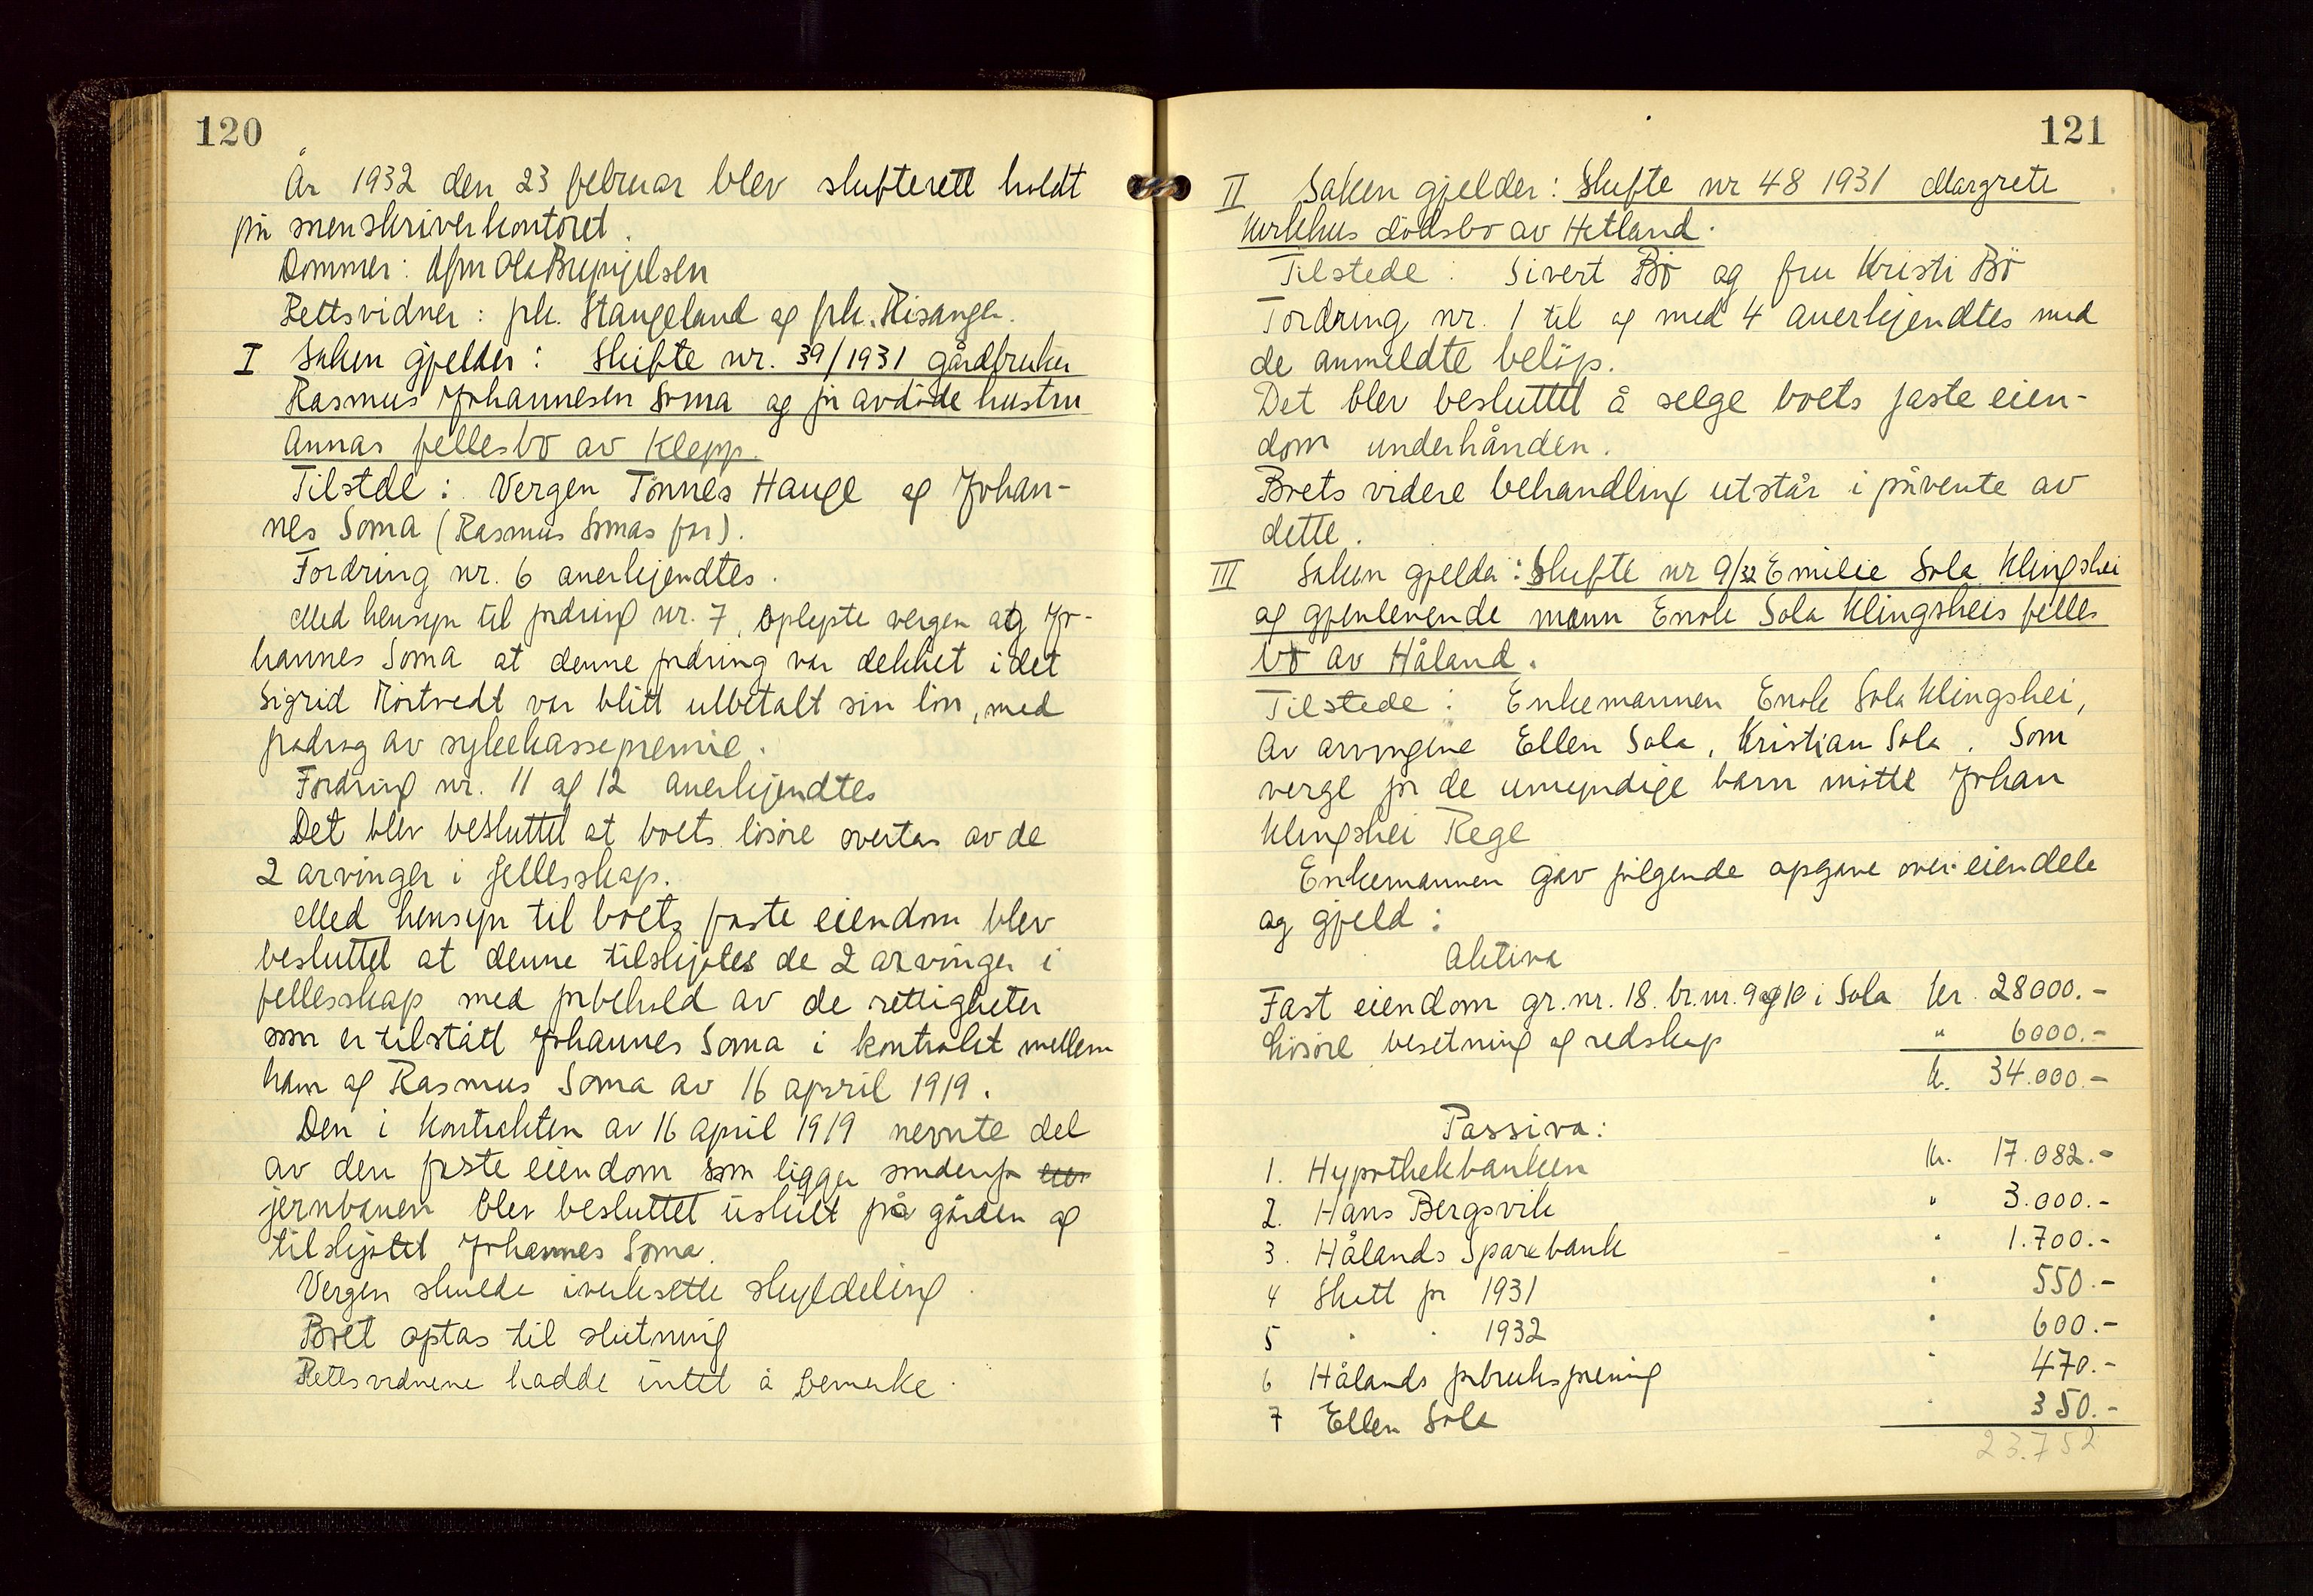 120
År 1932 den 23 februar blev skifterett holdt
på sorenskriverkontoret.
Dommer: dfm Ola Brynjelsen
Rettsvidner: frk. Stangeland og frk. Risanger.
I Saken gjelder: Skifte nr. 39/1931 gårdbruker
Rasmus Johannesen Soma og før avdöde hustru
Annas fellesbo av Klepp.
Tilstede: Vergen Tønnes Hauge og Johan-
nes Soma (Rasmus Somas far).
Fordring nr. 6 anerkjendtes.
Med hensyn til fordring nr. 7, oplyste vergen og Jo-
hannes Soma at denne fordring var dekket idet
Sigrid var blitt utbetalt sin lön, med
fradrag av sykekassepremie.
Fordring nr. 11 og 12 anerkjendtes
Det blev besluttet at boets lösöre overtas av de
2 arvinger i fellesskap.
Med hensyn til boets faste eiendom blev
besluttet at denne tilskjötes de 2 arvinger i
fellesskap med forbehold av de rettigheter
som er tilstått Johannes Soma i kontrakt mellem
ham og Rasmus Soma av 16 april 1919.
Den i kontrakten av 16 april 1919 nevnte del
av den faste eiendom som ligger sönderfor
jernbanen blev besluttet utskilt fra gården og
tilskjötet Johannes Soma.
Vergen skulde iverksette skylddeling.
Boet optas til slutning
Rettsvidnene hadde intet å bemerke.
121
II Saken gjelder: Skifte nr 48 1931 Margrete
Kirkhus dödsbo av Hetland.
Tilstede: Sivert Bö og fru Kristi Bö
Fordring nr. 1 til og med 4 anerkjendtes med
de anmeldte belöp.
Det blev besluttet å selge boets faste eien-
dom underhånden.
Boets videre behandling utstår i påvente av
dette.
III Saken gjelder: Skifte nr 9/32 Emilie Sola Klingshei
og gjenlevende mann Enok Sola Klingsheis felles
bo av Håland.
Tilstede: Enkemannen Enok Sola Klingshei,
av arvingene Ellen Sola, Kristian Sola. Som
verge for de umyndige barn mötte Johan
Klingshei Rege
Enkemannen gav fölgende opgave over eiendele
og gjeld:
Aktiva
Fast eiendom gr.nr. 18. br.nr. 9 og 10 i Sola kr. 28000.-
Lösöre besetning og redskap " 6000.-
kr. 34.000.-
Passiva:
1. Hypothekbanken kr. 17.082.-
2. Hans Bergsvik " 3.000.-
3. Hålands Sparebank " 1.700.-
4 Skatt for 1931 " 550.-
5 " " 1932 " 600.-
6 Hålands forbruksforening " 470.-
7 Ellen Sola " 350.-
23.752